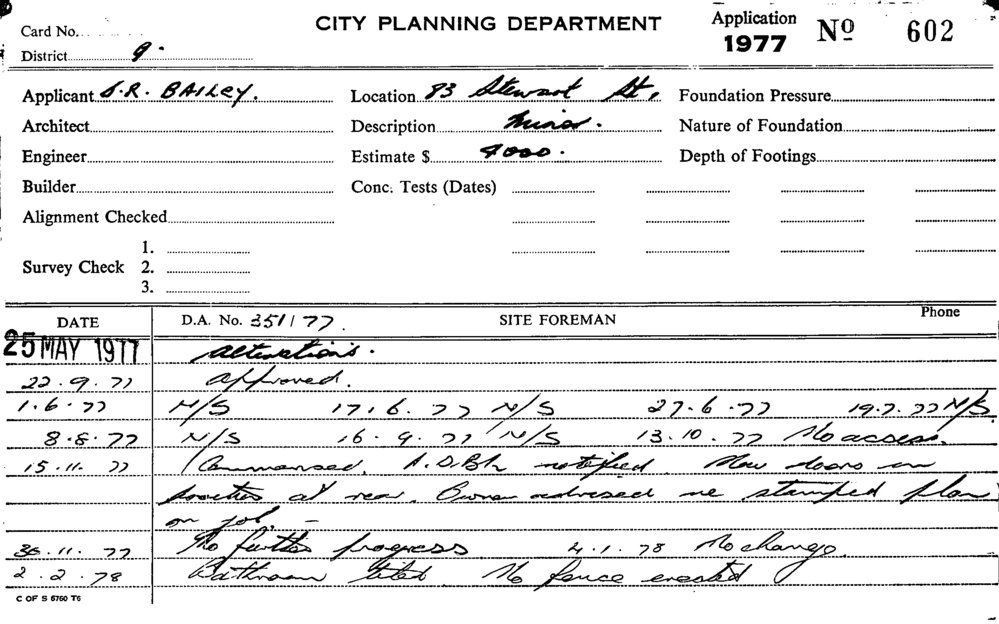 Card No.
CITY PLANNING DEPARTMENT
Application 1977 Nº 602
District 9.
Applicant S.R. BAILEY. Location 83 Stewart St, Foundation Pressure
Architect Description Minor. Nature of Foundation
Engineer Estimate $ 4000. Depth of Footings
Builder Conc. Tests (Dates)
Alignment Checked
Survey Check 1. 2. 3.
DATE D.A. No. 351/77. SITE FOREMAN Phone
25 MAY 1977 alterations.
22.9.77 approved.
1.6.77 N/S 17.6.77 N/S 27.6.77 19.7.77 N/S
8.8.77 N/S 16.9.77 N/S 13.10.77 No access.
15.11.77 Commenced. notified. New doors on
at rear. Owner advised re stamped plan
on job. –
30.11.77 No further progress 4.1.78 No change.
2.2.78 Bathroom tiled. No fence erected
C OF S 6760 T6